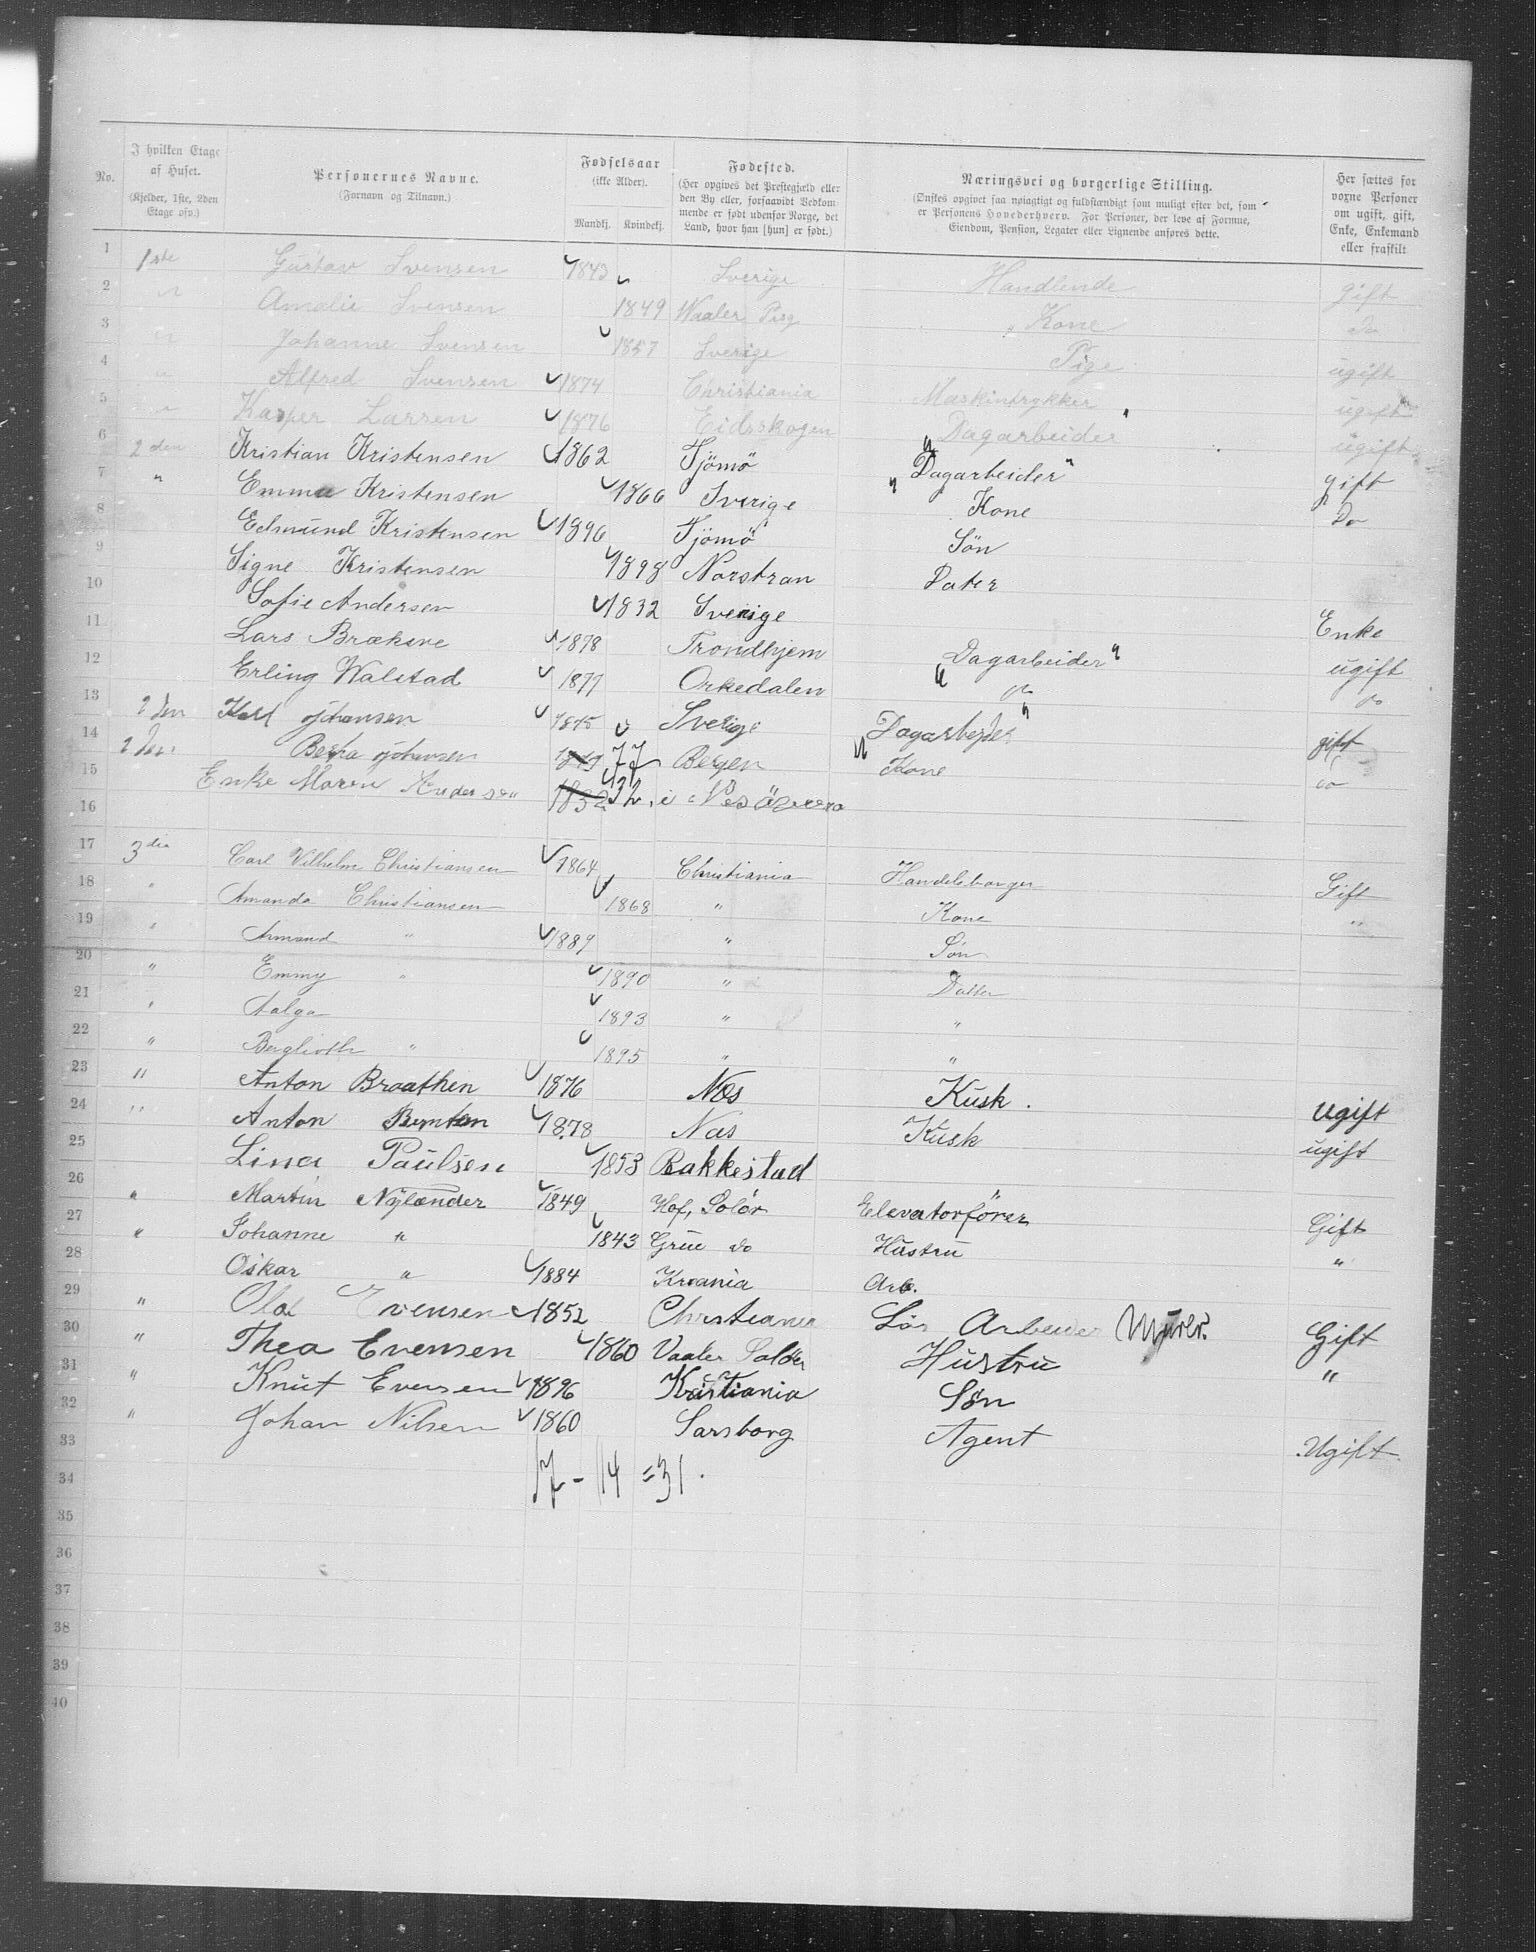 No. I hvilken Etage af Huset. (Kjelder, 1ste, 2den Etage osv.) Personernes Navne. (Fornavn og Tilnavn.) Fødselsaar (ikke Alder). Mandkj. Kvindekj. Fødested. (Her opgives det Prestegjæld eller den By eller, forsaavidt Vedkommende er født udenfor Norge, det Land, hvor han [hun] er født.) Næringsvei og borgerlige Stilling. (Ønskes opgivet saa nøiagtigt og fuldstændigt som muligt efter det, som er Personens Hovederhverv. For Personer, der leve af Formue, Eiendom, Pension, Legater eller Lignende anføres dette. Her sættes for voxne Personer om ugift, gift, Enke, Enkemand eller fraskilt
1 1ste Gustav Svensen 1843 Sverige Handlende gift
2 " Amalie Svensen 1849 Waaler Kone do
3 " Johanne Svensen 1857 Sverige Pige ugift
4 " Alfred Svensen 1874 Christiania Maskintrykker ugift
5 " Kasper Larsen 1876 Eidsskogen Dagarbeider ugift
6 2den Kristian Kristensen 1862 Tjömö "Dagarbeider" gift
7 " Emma Kristensen 1866 Sverige Kone Do
8 Edmund Kristensen 1896 Tjömö Sön
9 Signe Kristensen 1898 Norstran Dater
10 Sofie Andersen 1832 Sverige Enke
11 Lars Brækene 1878 Trondhjem Dagarbeider" ugift
12 Erling Walstad 1877 Orkedalen " do
13 2den Karl Johansen 1845 Sverige Dagarbejder gift
14 2den Berta Johansen 77 Bergen Kone do
15 Enke Maren Andersen 1832 32
16
17 3die Carl Vilhelm Christiansen 1864 Christiania Handelsborger Gift
18 " Amanda Christiansen 1868 " Kone "
19 " Armand " 1889 " Søn
20 " Emmy " 1890 " Datter
21 " Aalga 1893 " "
22 " Bergliotth " 1895 " "
23 " Anton Braathen 1876 Næs Kusk. ugift
24 " Anton Berntsen 1878 Næs Kusk ugift
25 Lina Paulsen 1853 Bakkestad
26 " Martin Nÿlænder 1849 Hof, Solör Elevatorförer Gift
27 " Johanne " 1843 Grue do Hustru "
28 Oskar " 1884 Kr.ania Arb.
29 " Olaf Evensen 1852 Christiania Arbeider Gift
30 " Thea Evensen 1860 Vaaler Solör Hustru "
31 " Knut Evensen 1896 Kristiania Søn
32 " Johan Nilsen 1860 Sarsborg Agent Ugift.
33 17 - 14 = 31.
34
35
36
37
38
39
40